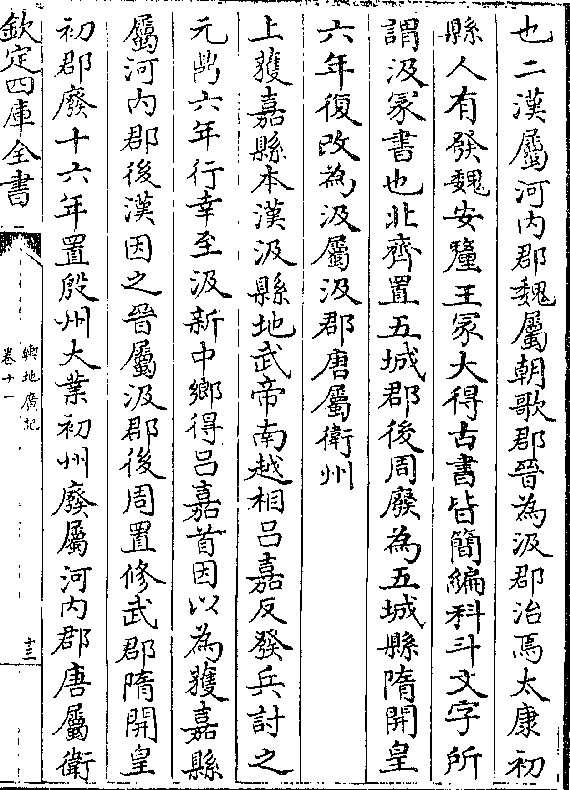 也二漢屬河内郡魏屬朝歌郡晉為汲郡治焉太康初
縣人有發魏安釐王冢大得古書皆簡編科斗文字所
謂汲冢書也北齊置五城郡後周廢為五城縣隋開皇
六年復改為汲屬汲郡唐屬衛州
上獲嘉縣本漢汲縣地武帝南越相吕嘉反發兵討之
元鼎六年行幸至汲新中鄉得吕嘉首因以為獲嘉縣
屬河内郡後漢因之晉屬汲郡後周置修武郡隋開皇
初郡廢十六年置殷州大業初州廢屬河内郡唐屬衛
欽定四庫全書
輿地廣記
卷十一
十三